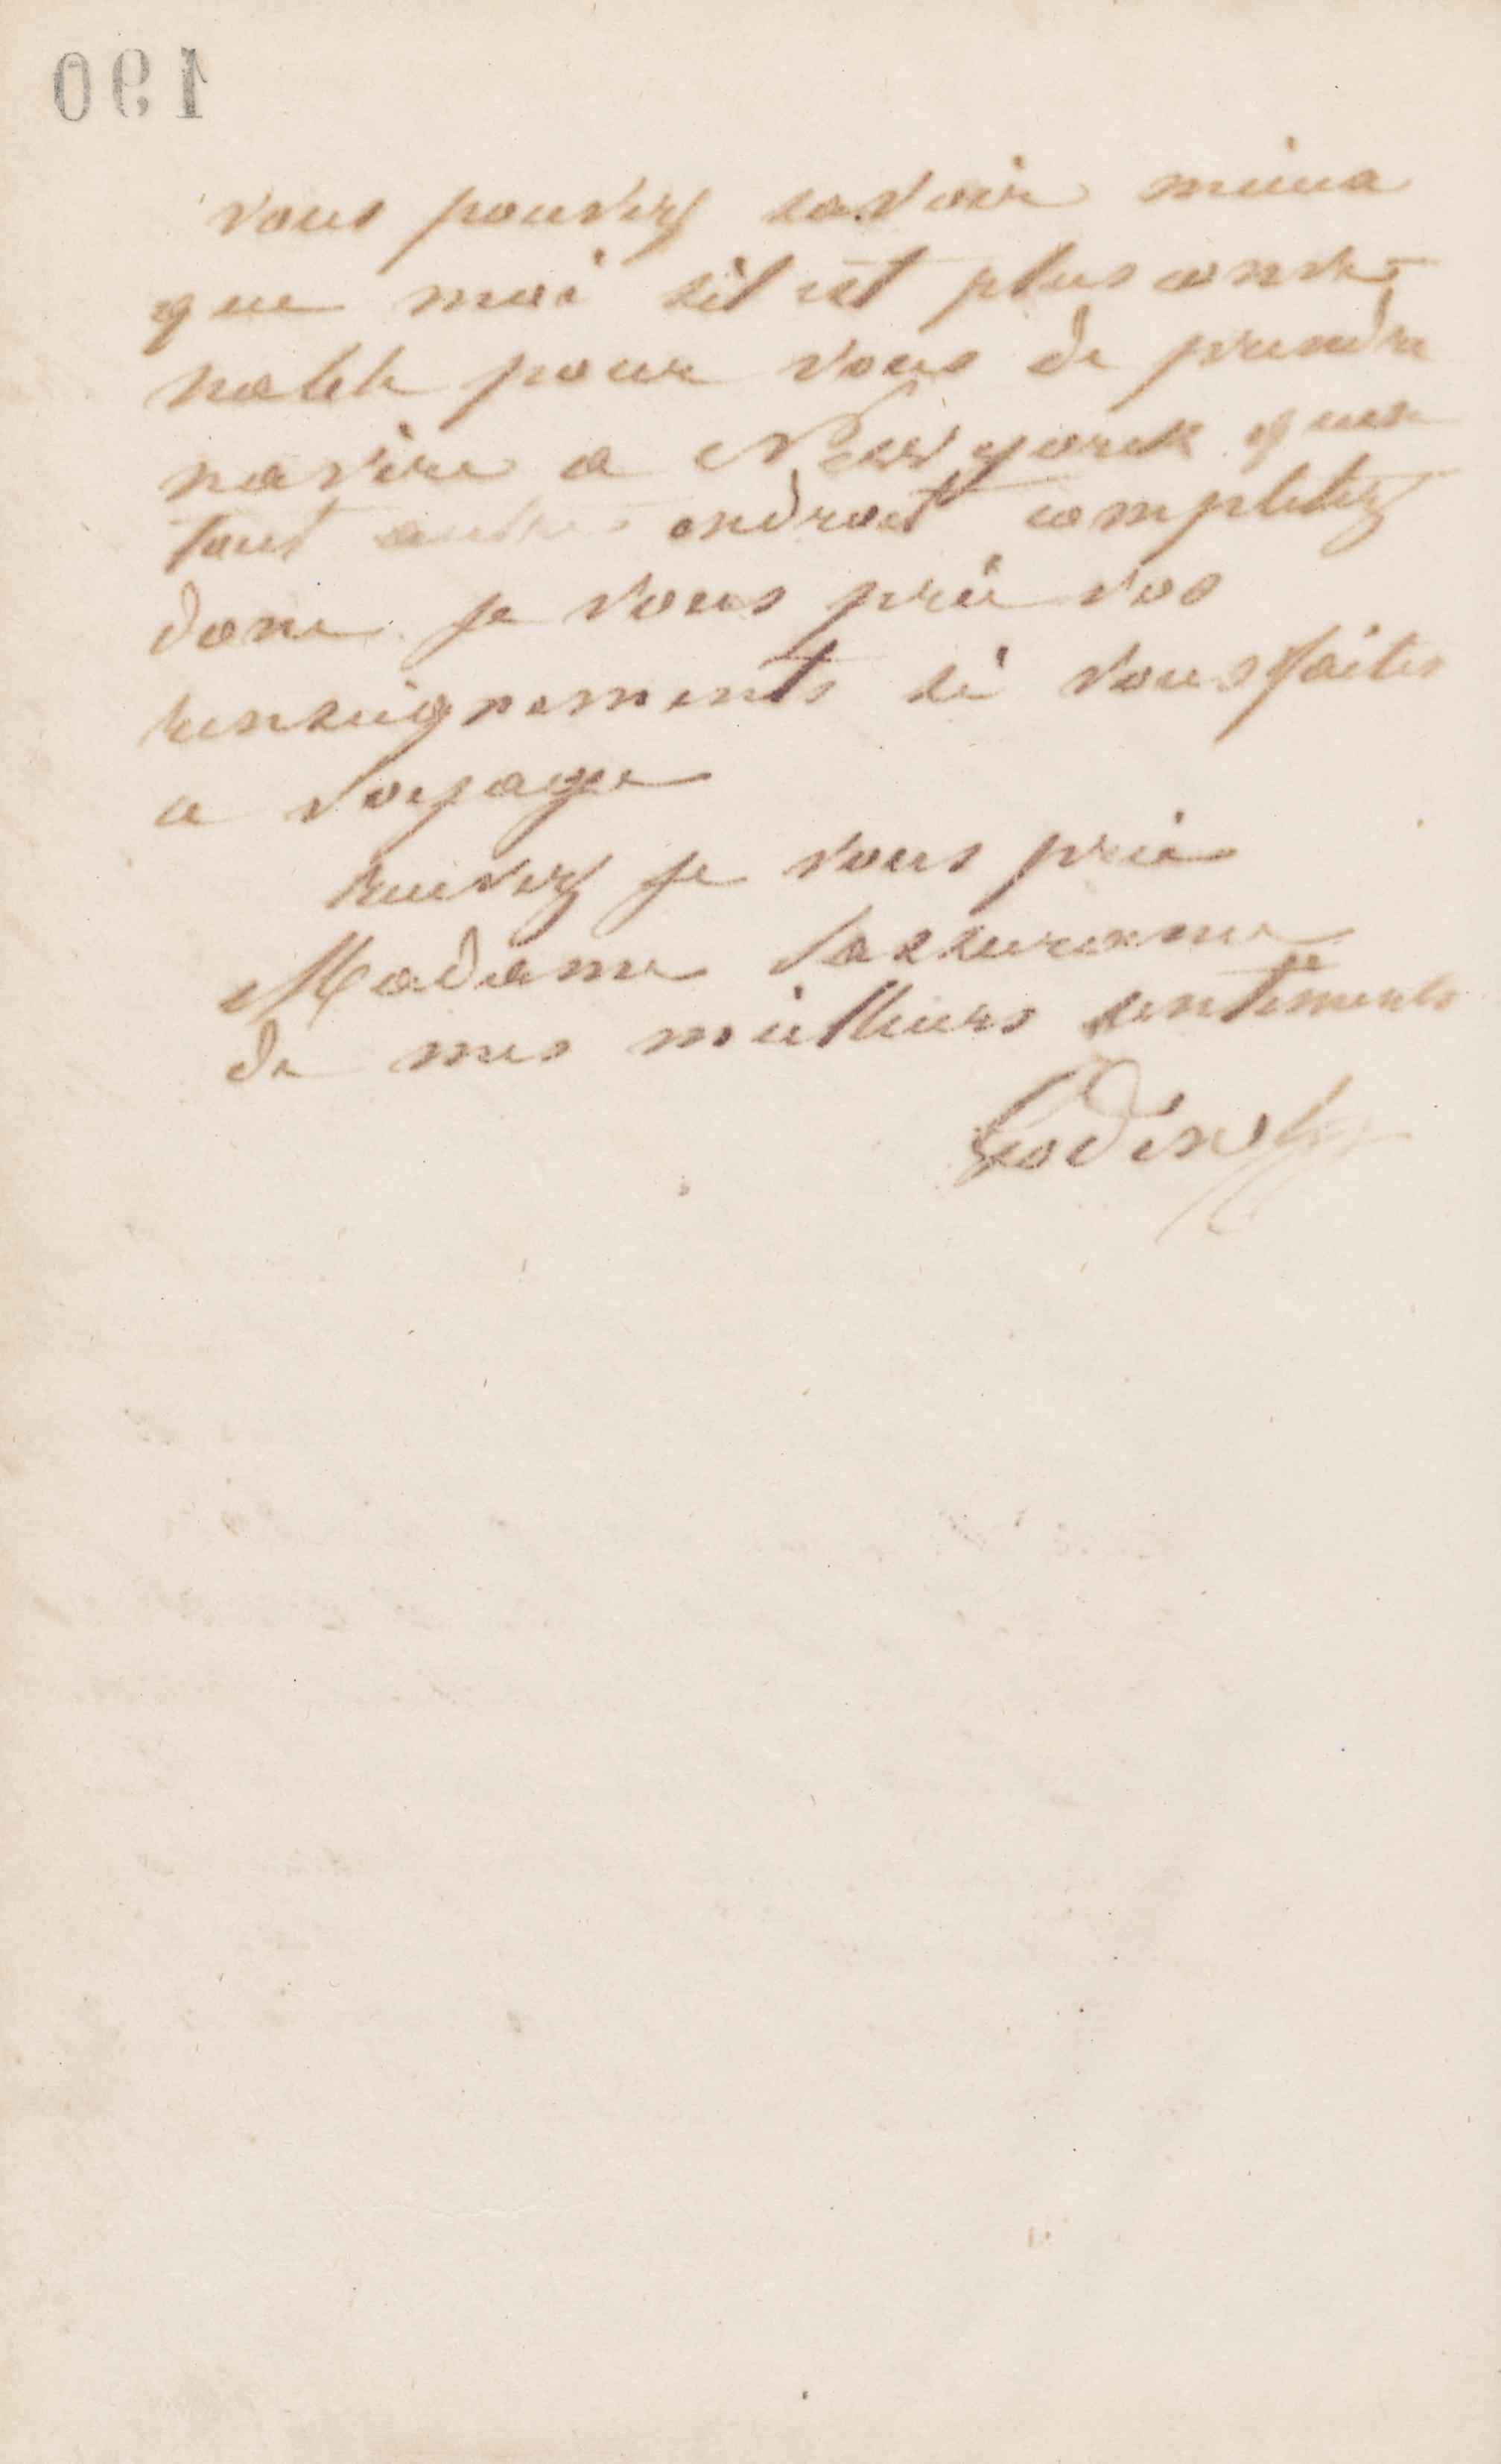 190
vous pouvez savoir mieux
que moi s'il est plus conve-
nable pour vous de prendre
navire a New york que
tout autre endroit complétez
donc je vous prie vos
renseignements si vous faites
ce voyage
recevez je vous prie
Madame l'assurance
de mes meilleurs sentiments
Godin